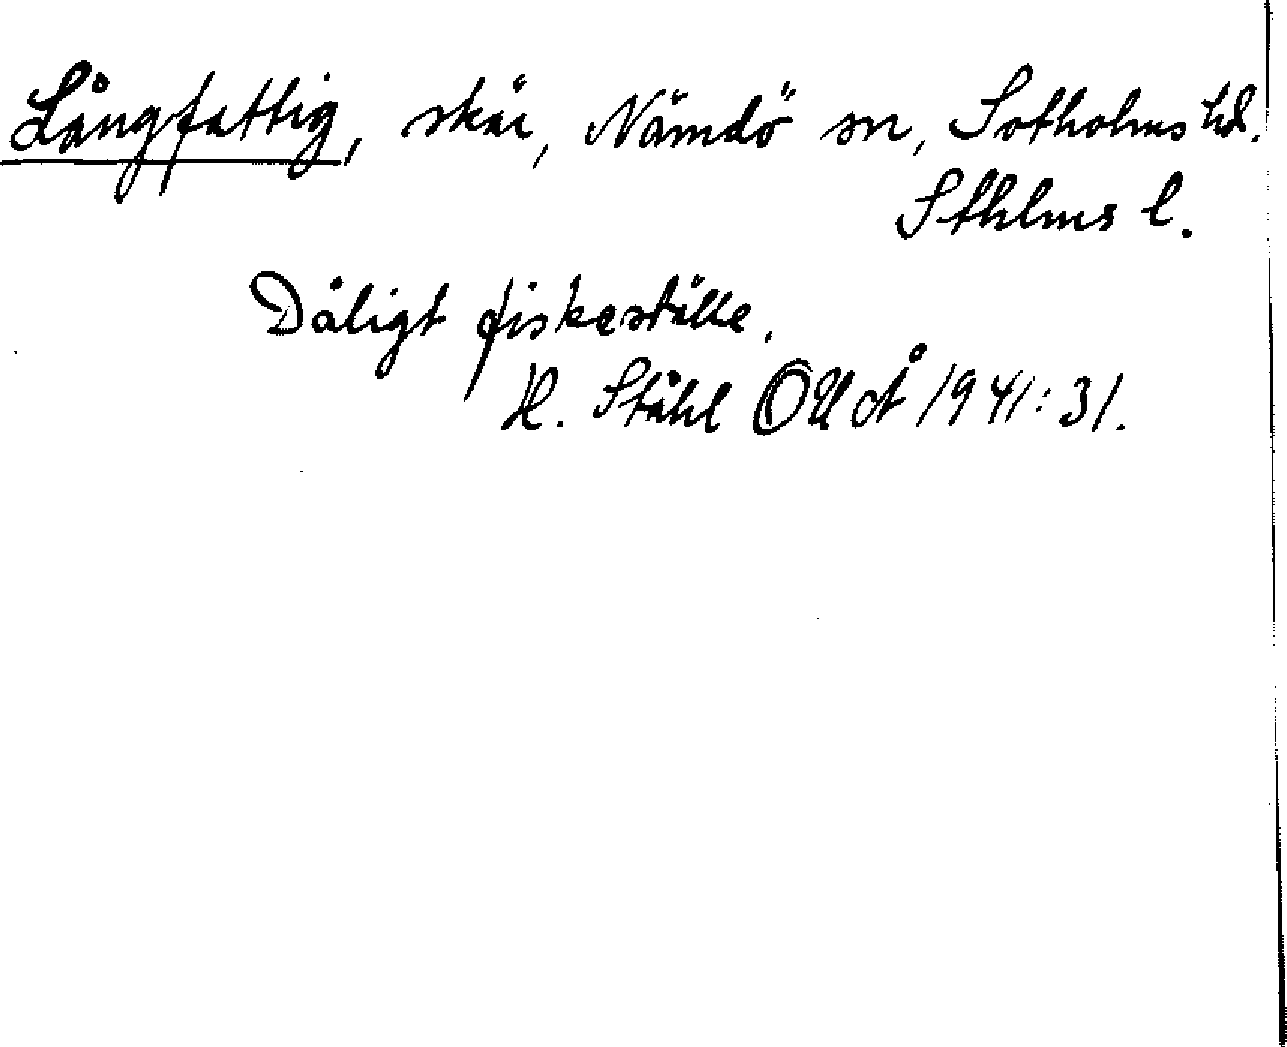 Långfattig, skär, Nämdö sn, Sotholms hd.
Sthlms l.
Dåligt fiskeställe.
H. Ståhl OUÅ 1941:31.